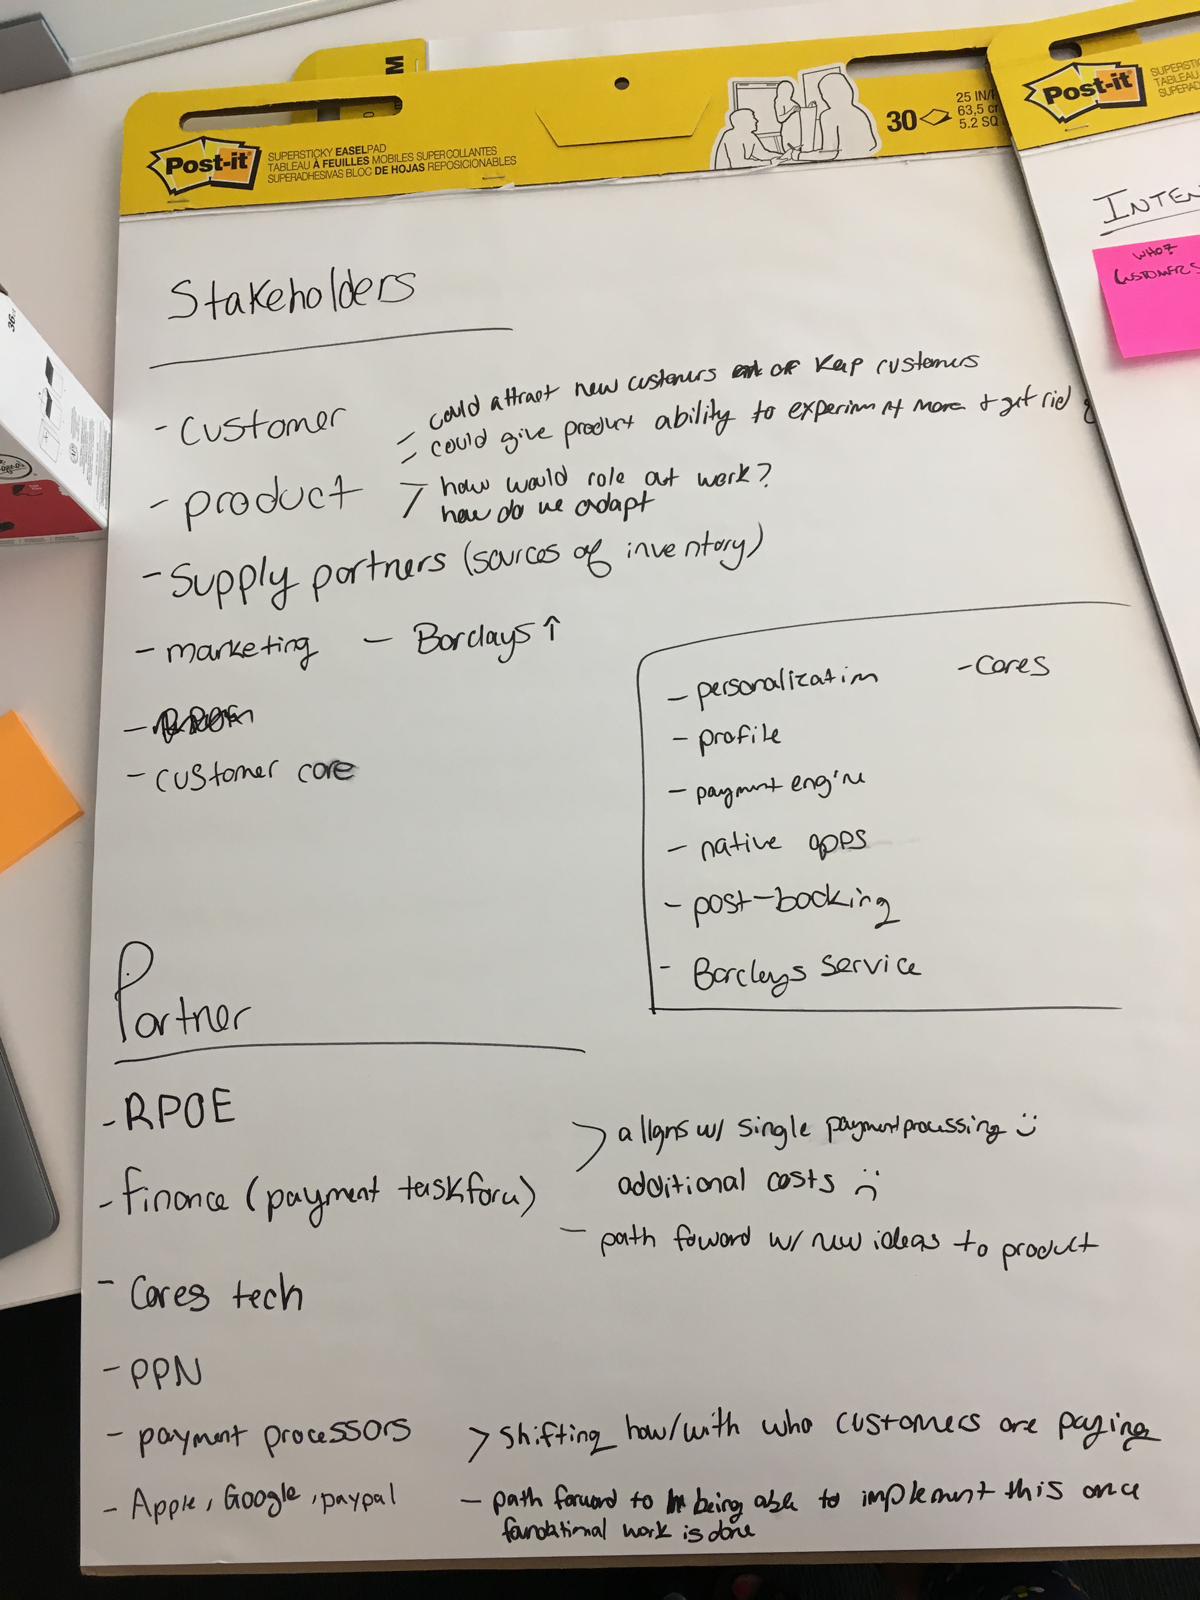 M
Post-it
SUPERSTICKY EASELPAD
TABLEAU À FEUILLES MOBILES SUPERCOLLANTES
SUPERADHESIVAS BLOC DE HOJAS REPOSICIONABLES
30
25 IN/
63,5 c
5.2 SQ
Post-it
SUPERSTIC
TABLEAU
SUPERAD
INTEN
WHO?
CUSTOMERS
36
Stakeholders
- Customer
- could attract new customers or keep customers
- could give product ability to experiment more + get rid
- product
> how would role out work?
how do we adapt
- Supply partners (sources of inventory)
- marketing - Barclays ↑
- customer care
- personalization - Cares
- profile
- payment engine
- native apps
- post-booking
- Barclays service
Partner
- RPOE
- Finance (payment taskforce)
> aligns w/ single payment processing :)
additional costs :(
- path foward w/ new ideas to product
- Cares tech
- PPN
- payment processors > shifting how/with who customers are paying
- Apple, Google, paypal - path forward to being able to implement this once
foundational work is done